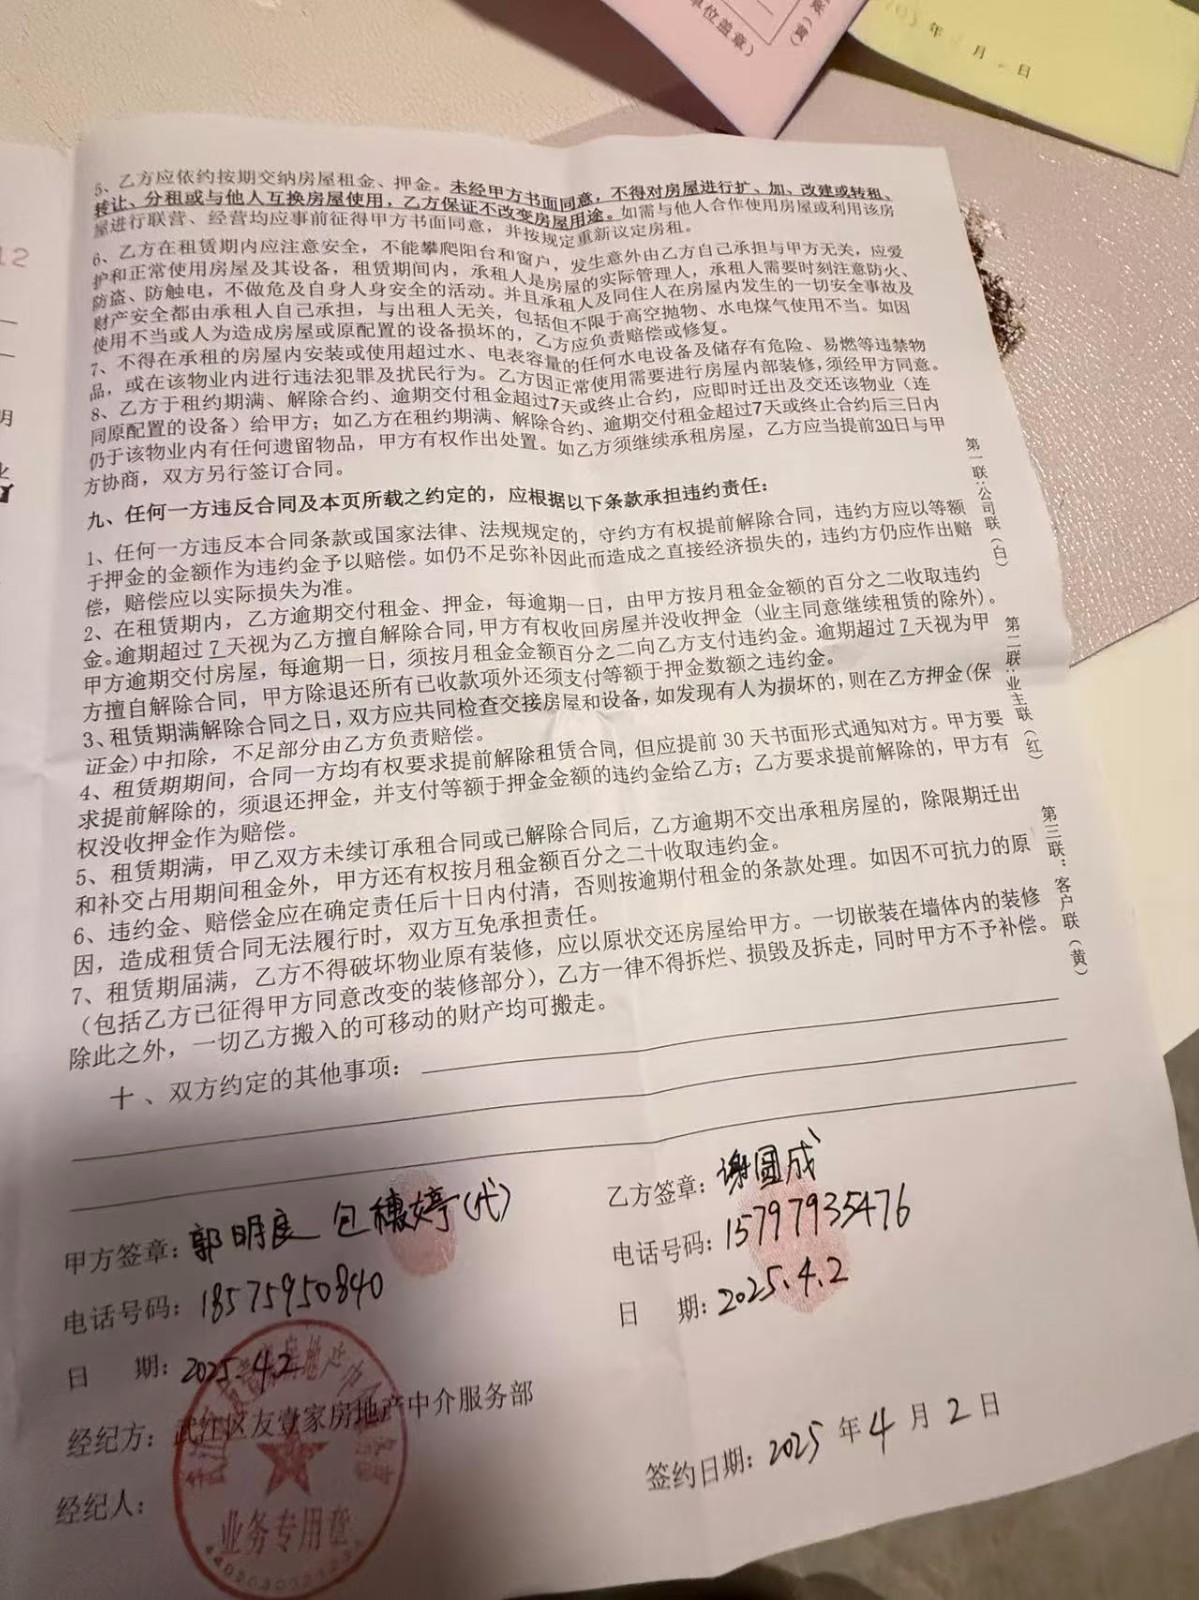 单位盖章）
联（黄）
年 月 日
12
明
5、乙方应依约按期交纳房屋租金、押金。未经甲方书面同意，不得对房屋进行扩、加、改建或转租、
转让、分租或与他人互换房屋使用，乙方保证不改变房屋用途。如需与他人合作使用房屋或利用该房
屋进行联营、经营均应事前征得甲方书面同意，并按规定重新议定房租。
6、乙方在租赁期内应注意安全，不能攀爬阳台和窗户，发生意外由乙方自己承担与甲方无关，应爱
护和正常使用房屋及其设备，租赁期间内，承租人是房屋的实际管理人，承租人需要时刻注意防火、
防盗、防触电，不做危及自身人身安全的活动。并且承租人及同住人在房屋内发生的一切安全事故及
财产安全都由承租人自己承担，与出租人无关，包括但不限于高空抛物、水电煤气使用不当。如因
使用不当或人为造成房屋或原配置的设备损坏的，乙方应负责赔偿或修复。
7、不得在承租的房屋内安装或使用超过水、电表容量的任何水电设备及储存有危险、易燃等违禁物
品，或在该物业内进行违法犯罪及扰民行为。乙方因正常使用需要进行房屋内部装修，须经甲方同意。
8、乙方于租约期满、解除合约、逾期交付租金超过7天或终止合约，应即时迁出及交还该物业（连
同原配置的设备）给甲方；如乙方在租约期满、解除合约、逾期交付租金超过7天或终止合约后三日内
仍于该物业内有任何遗留物品，甲方有权作出处置。如乙方须继续承租房屋，乙方应当提前30日与甲
方协商，双方另行签订合同。
九、任何一方违反合同及本页所载之约定的，应根据以下条款承担违约责任：
1、任何一方违反本合同条款或国家法律、法规规定的，守约方有权提前解除合同，违约方应以等额
于押金的金额作为违约金予以赔偿。如仍不足弥补因此而造成之直接经济损失的，违约方仍应作出赔
偿，赔偿应以实际损失为准。
2、在租赁期内，乙方逾期交付租金、押金，每逾期一日，由甲方按月租金金额的百分之二收取违约
金。逾期超过 7 天视为乙方擅自解除合同，甲方有权收回房屋并没收押金（业主同意继续租赁的除外）。
甲方逾期交付房屋，每逾期一日，须按月租金金额百分之二向乙方支付违约金。逾期超过 7 天视为甲
方擅自解除合同，甲方除退还所有已收款项外还须支付等额于押金数额之违约金。
3、租赁期满解除合同之日，双方应共同检查交接房屋和设备，如发现有人为损坏的，则在乙方押金(保
证金)中扣除，不足部分由乙方负责赔偿。
4、租赁期期间，合同一方均有权要求提前解除租赁合同，但应提前 30 天书面形式通知对方。甲方要
求提前解除的，须退还押金，并支付等额于押金金额的违约金给乙方；乙方要求提前解除的，甲方有
权没收押金作为赔偿。
5、租赁期满，甲乙双方未续订承租合同或已解除合同后，乙方逾期不交出承租房屋的，除限期迁出
和补交占用期间租金外，甲方还有权按月租金额百分之二十收取违约金。
6、违约金、赔偿金应在确定责任后十日内付清，否则按逾期付租金的条款处理。如因不可抗力的原
因，造成租赁合同无法履行时，双方互免承担责任。
7、租赁期届满，乙方不得破坏物业原有装修，应以原状交还房屋给甲方。一切嵌装在墙体内的装修
（包括乙方已征得甲方同意改变的装修部分），乙方一律不得拆烂、损毁及拆走，同时甲方不予补偿。
除此之外，一切乙方搬入的可移动的财产均可搬走。
十、双方约定的其他事项：
第一联：公司联（白）
第二联：业主联（红）
第三联：客户联（黄）
甲方签章：郭明良 包穗婷(代)
电话号码：18575950840
日 期：2025.4.2
经纪方：武江区友壹家房地产中介服务部
经纪人：
乙方签章：谢圆成
电话号码：15797935476
日 期：2025.4.2
签约日期：2025 年 4 月 2 日
业务专用章